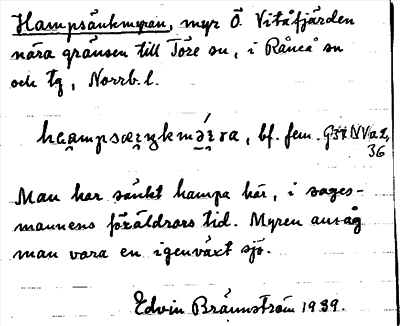 Hampsänkmyran, myr Ö. Vitåfjärden
nära gränsen till Töre sn, i Råneå sn
och tg, Norrb. l.
bf. fem.
36
Man har sänkt hampa här, i sages-
mannens föräldrars tid. Myren ansåg
man vara en igenväxt sjö.
Edvin Brännström 1939.